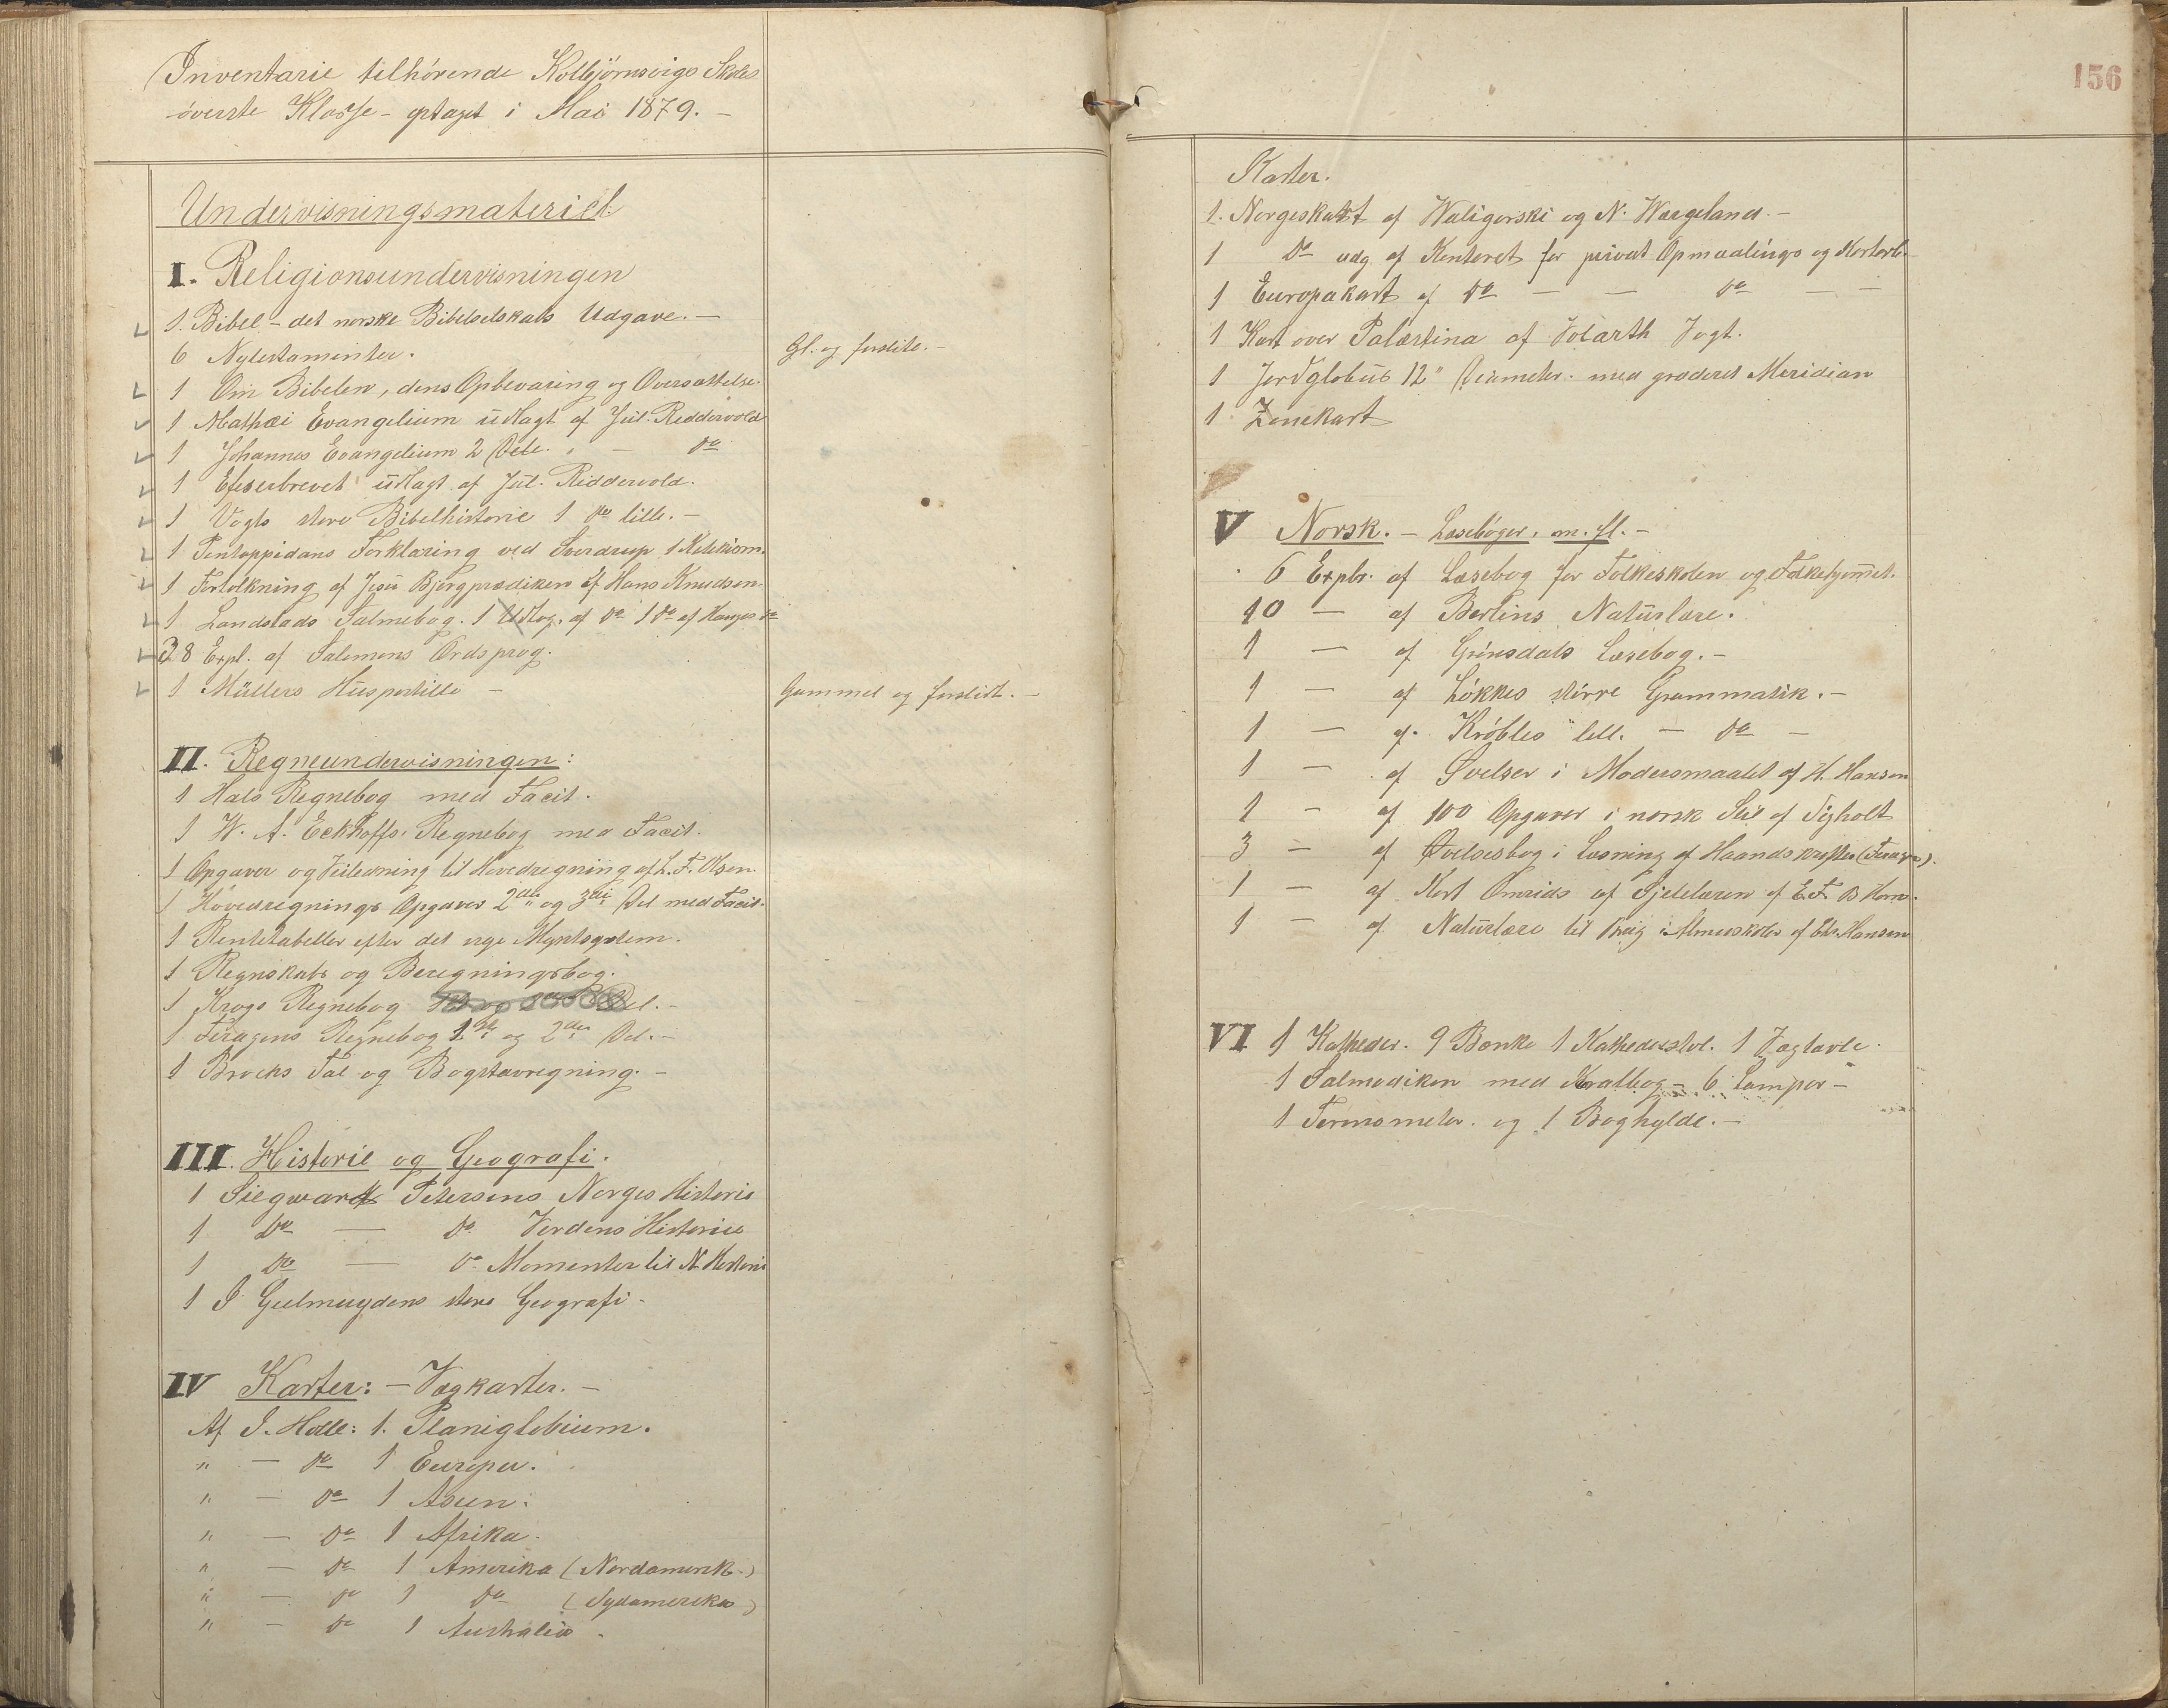 Inventarie tilhörende Kolbjörnsvigs Skoles
överste Klasse - optaget i Mai 1879. -
Undervisningsmateriel
I. Religionsundervisningen
1. Bibel - det norske Bibelselskabs Udgave. -
6 Nytestamenter. Gl. og forslite. -
1 Om Bibelen, dens Opbevaring og Oversættelse.
1 Mathæi Evangelium udlagt af Jul. Riddervold
1 Johannes Evangelium 2 Dele. - do
1 Efeserbrevet udlagt af Jul. Riddervold.
1 Vogts store Bibelhistorie 1 do lille. -
1 Pontoppidans Forklaring ved Sverdrup 1 Katekism.
1 Fortolkning af Jesu Bjergprædiken af Hans Knudsen.
1 Landstads Salmebog. 1 Udtog. af do 1 do af Hauges do
38 Expl. af Salomons Ordsprog.
1 Müllers Huspostille - Gammel og forslidt. -
II. Regneundervisningen:
1 Hals Regnebog med Facit.
1 W. A. Eckhoffs Regnebog med Facit.
1 Opgaver og Veiledning til Hovedregning af L. F. Olsen.
1 Hovedregnings Opgaver 2den og 3die Del med Facit.
1 Rentetabeller efter det nye Myntsystem.
1 Regnskabs og Beregningsbog.
1 Krogs Regnebog Del. -
1 Feragens Regnebog 1ste og 2den Del. -
1 Brochs Tal og Bogstavregning. -
III. Historie og Geografi.
1 Siegwardt Petersens Norges Historie
1 do - do Verdens Historie
1 do - do Momenter til N. Historie
1 I Geelmuydens store Geografi -
IV Karter: - Vægkarter. -
Af I. Holle: 1. Planiglobium.
" - do 1 Europa.
" - do 1 Asien.
" - do 1 Afrika.
" - do 1 Amerika (Nordamerik.)
" - do 1 do (Sydamerika)
" - do 1 Australia -
156
Karter.
1. Norgeskart af Waligorski og N. Wergeland. -
1 do udg af Kontoret for privat Opmaalings og Kortarb.
1 Europakart af do - - do - -
1 Kart over Palæstina af Volrath Vogt.
1 Jordglobus 12" Diameter. med graderet Meridian
1 Zonekart
V Norsk. - Læsebøger. m. fl. -
6 Explr. af Læsebog for Folkeskolen og Folkehjemmet.
10 - af Berlins Naturlære.
1 - af Læsebog. -
1 - af Lökkes större Grammatik. -
1 - af lill. - do -
1 - af Øvelser i Modersmaalet af H. Hansen
1 - af 100 Opgaver i norsk Stil af Sigholt
3 - af Øvelsesbog i Læsning af Haandskrifter (Feragen).
1 - af Kort Omrids af Sjelelæren af E. F. B Horn.
1 - af Naturlære til Brug i Almueskoler af Chr. Hansen
VI 1 Katheder. 9 Bænke 1 Kathederstol. 1 Vægtavle.
1 Salmodikon med Koralbog - 6 Lamper -
1 Termometer. og 1 Boghylde. -